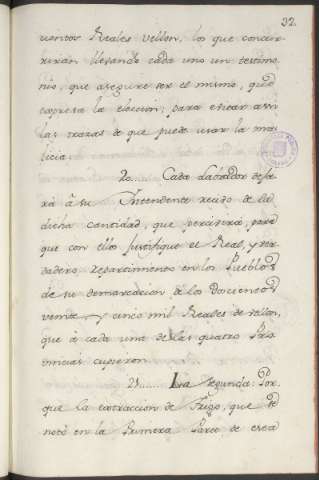 32.
uentos Reales Vellon, los que concur-
riràn llevando cada uno un testimo
nio, que asegure ser el mismo, que
expresa la eleccion; para evitar assi
las trazas de que puede usar la ma
licia.
20..... Cada Labrador dexa
rà à su Intendente recivo de la
dicha cantidad, que percivirà para
que con ellos justifique el Real, y ver
dadero repartimento en los Pueblos
de su demarcacion de los Doscientos
veinte y cinco mil Reales de vellon,
que à cada una de las quatro Pro
vincias cupieron.
21...... La segunda Por-
que la extraccion de Trigo, que se
notò en la Primera Parte de esta